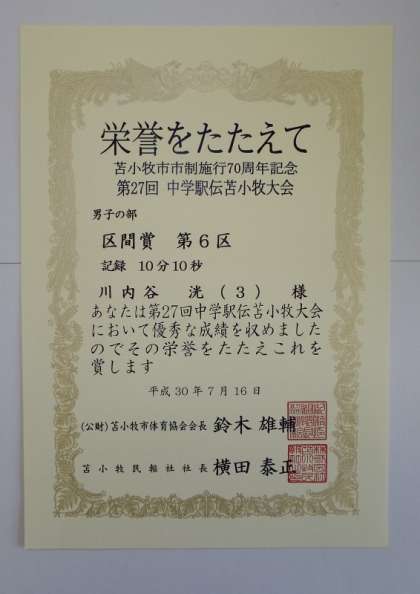 栄誉をたたえて
苫小牧市市制施行70周年記念
第27回 中学駅伝苫小牧大会
男子の部
区間賞 第6区
記録 10分10秒
川内谷 洸(3) 様
あなたは第27回中学駅伝苫小牧大会
において優秀な成績を収めました
のでその栄誉をたたえこれを
賞します
平成30年7月16日
(公財)苫小牧市体育協会会長 鈴木 雄輔
苫小牧民報社社長 横田 泰正